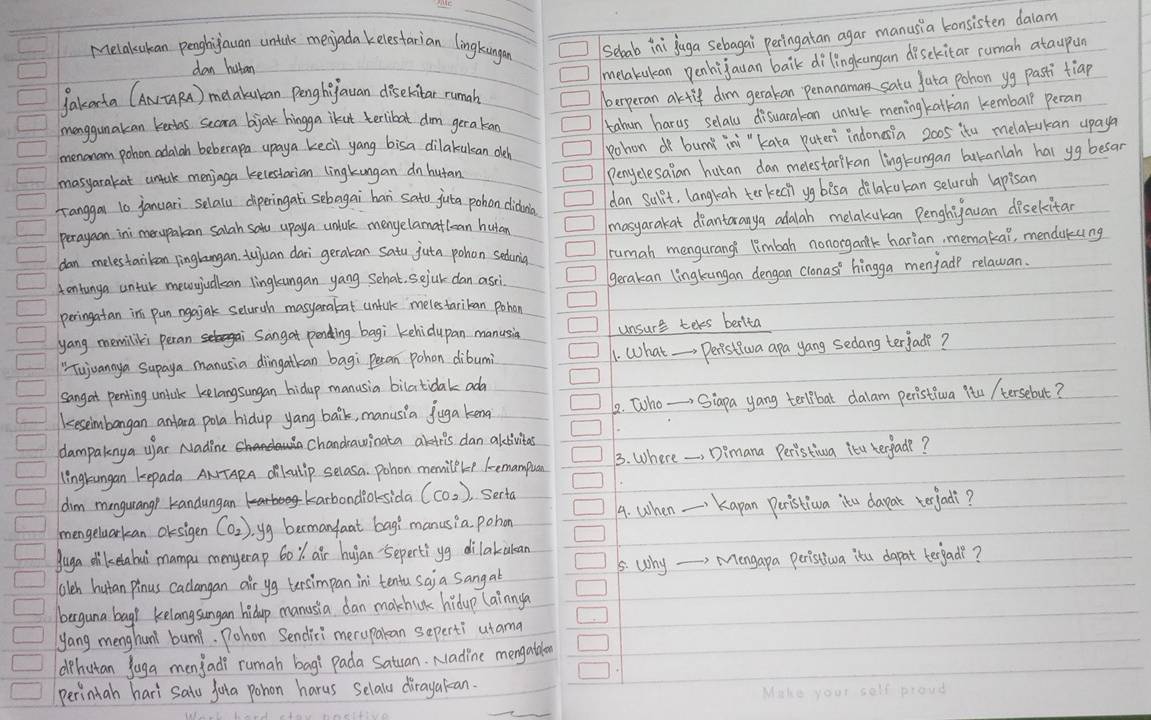 Melakukan penghijauan untuk menjada kelestarian lingkungan
dan hutan
Jakarta (ANTARA) melakukan Penghijauan disekitar rumah
menggunakan kertas secara bijak hingga ikut terlibat dlm gerakan
menanam pohon adalah beberapa upaya kecil yang bisa dilakukan oleh
masyarakat untuk menjaga kelestarian lingkungan dn hutan
Tanggal 10 Januari selalu diperingati sebagai hari satu juta pohon didunia.
Perayaan ini merupakan salah satu upaya untuk menyelamatkan hutan
dan melestarikan lingkungan. tujuan dari gerakan satu juta pohon sedunia
tentunya untuk mewujudkan lingkungan yang sehat. sejuk dan asri.
peringatan ini pun ngajak seluruh masyarakat untuk melestarikan Pohon
yang memiliki peran sangat penting bagi kehidupan manusia
"Tujuannya supaya manusia diingatkan bagi peran pohon dibumi
sangat penting untuk kelangsungan hidup manusia bila tidak ada
keseimbangan antara pola hidup yang baik, manusia juga kena
dampaknya ujar Nadine Chandrawinata aktris dan aktivitas
lingkungan kepada ANTARA dikutip selasa. pohon memiliki kemampuan
dlm mengurangi kandungan karbondioksida (CO2). Serta
mengeluarkan oksigen (O2), yg bermanfaat bagi manusia. pohon
Juga diketahui mampu menyerap 60% air hujan seperti yg dilakukan
oleh hutan Pinus cadangan air yg tersimpan ini tentu saja sangat
berguna bagi kelangsungan hidup manusia dan makhluk hidup lainnya
yang menghuni bumi. Pohon sendiri merupakan seperti utama
dihutan juga menjadi rumah bagi pada satuan. Nadine mengatakan
perintah hari satu juta pohon harus selalu dirayakan.
Sebab ini juga sebagai peringatan agar manusia konsisten dalam
melakukan penhijauan baik dilingkungan disekitar rumah ataupun
berperan aktif dlm gerakan penanaman satu juta pohon yg pasti tiap
tahun harus selalu disuarakan untuk meningkatkan kembali peran
Pohon di bumi ini "kata puteri indonesia 2005 itu melakukan upaya
Penyelesaian hutan dan melestarikan lingkungan bukanlah hal yg besar
dan sulit, langkah terkecil yg bisa dilakukan seluruh lapisan
masyarakat diantaranya adalah melakukan Penghijauan disekitar
rumah mengurangi limbah nonorganik harian, memakai, mendukung
gerakan lingkungan dengan donasi hingga menjadi relawan.
unsur2 teks berita
1. What → Peristiwa apa yang sedang terjadi?
2. Who → Siapa yang terlibat dalam peristiwa itu / tersebut?
3. Where → Dimana Peristiwa itu terjadi?
4. When → Kapan Peristiwa itu dapat terjadi?
5. Why → Mengapa Peristiwa itu dapat terjadi?
Make your self proud
Work hard stay positive